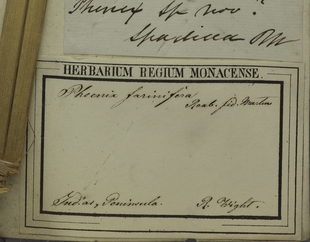 Phenix Sp nov.
Spadicea
HERBARIUM REGIUM MONACENSE.
Phoenix farinifera
Roxb. fid. Martius
Indiae, Peninsula.
R. Wight.